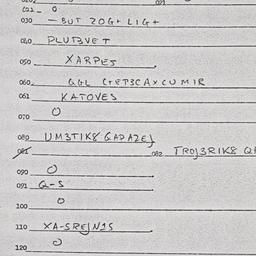 021 O
030 - BUT ZOG+ LIG+
040 PLUTBVET
050 XARPES
060
061 KATOVES
070 O
080 UM3TIK8 GADAZEJ
081
082 TROJ3RIK8
090 O
091 Q-S
100 O
110 XA-SREJN1S
120 O